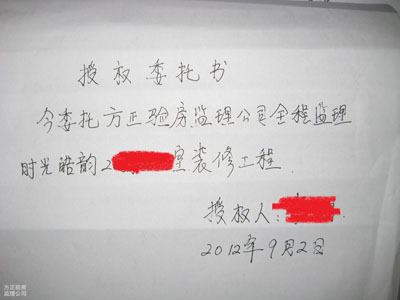 授权委托书
今委托方正验房监理公司全程监理
时光皓韵2室装修工程.
授权人:
2012年9月2日
方正验房
监理公司